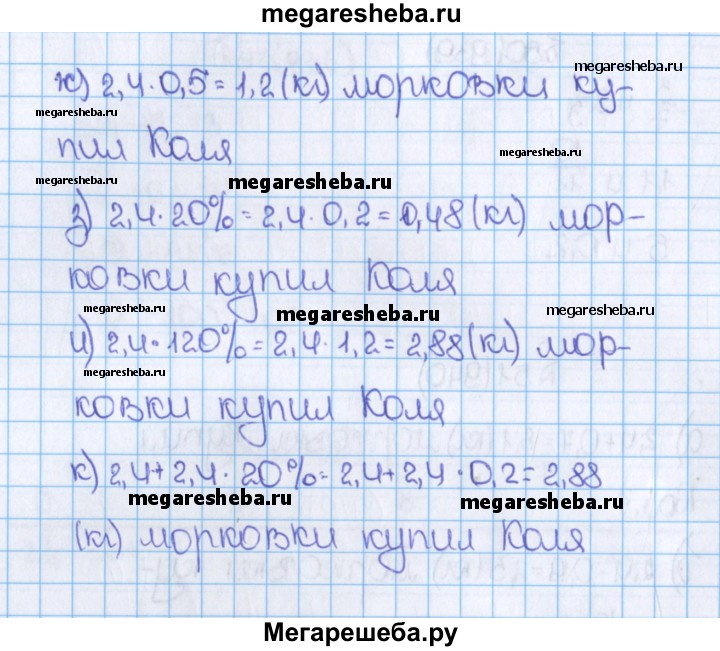 megaresheba.ru
ж) 2,4 · 0,5 = 1,2 (кг) морковки ку-
megaresheba.ru
megaresheba.ru
пил Коля
megaresheba.ru
megaresheba.ru
megaresheba.ru
з) 2,4 · 20% = 2,4 · 0,2 = 0,48 (кг) мор-
ковки купил Коля
megaresheba.ru
megaresheba.ru
megaresheba.ru
и) 2,4 · 120% = 2,4 · 1,2 = 2,88 (кг) мор-
megaresheba.ru
ковки купил Коля
к) 2,4 + 2,4 · 20% = 2,4 + 2,4 · 0,2 = 2,88
megaresheba.ru
megaresheba.ru
(кг) морковки купил Коля
megaresheba.ru
Мегарешеба.ру